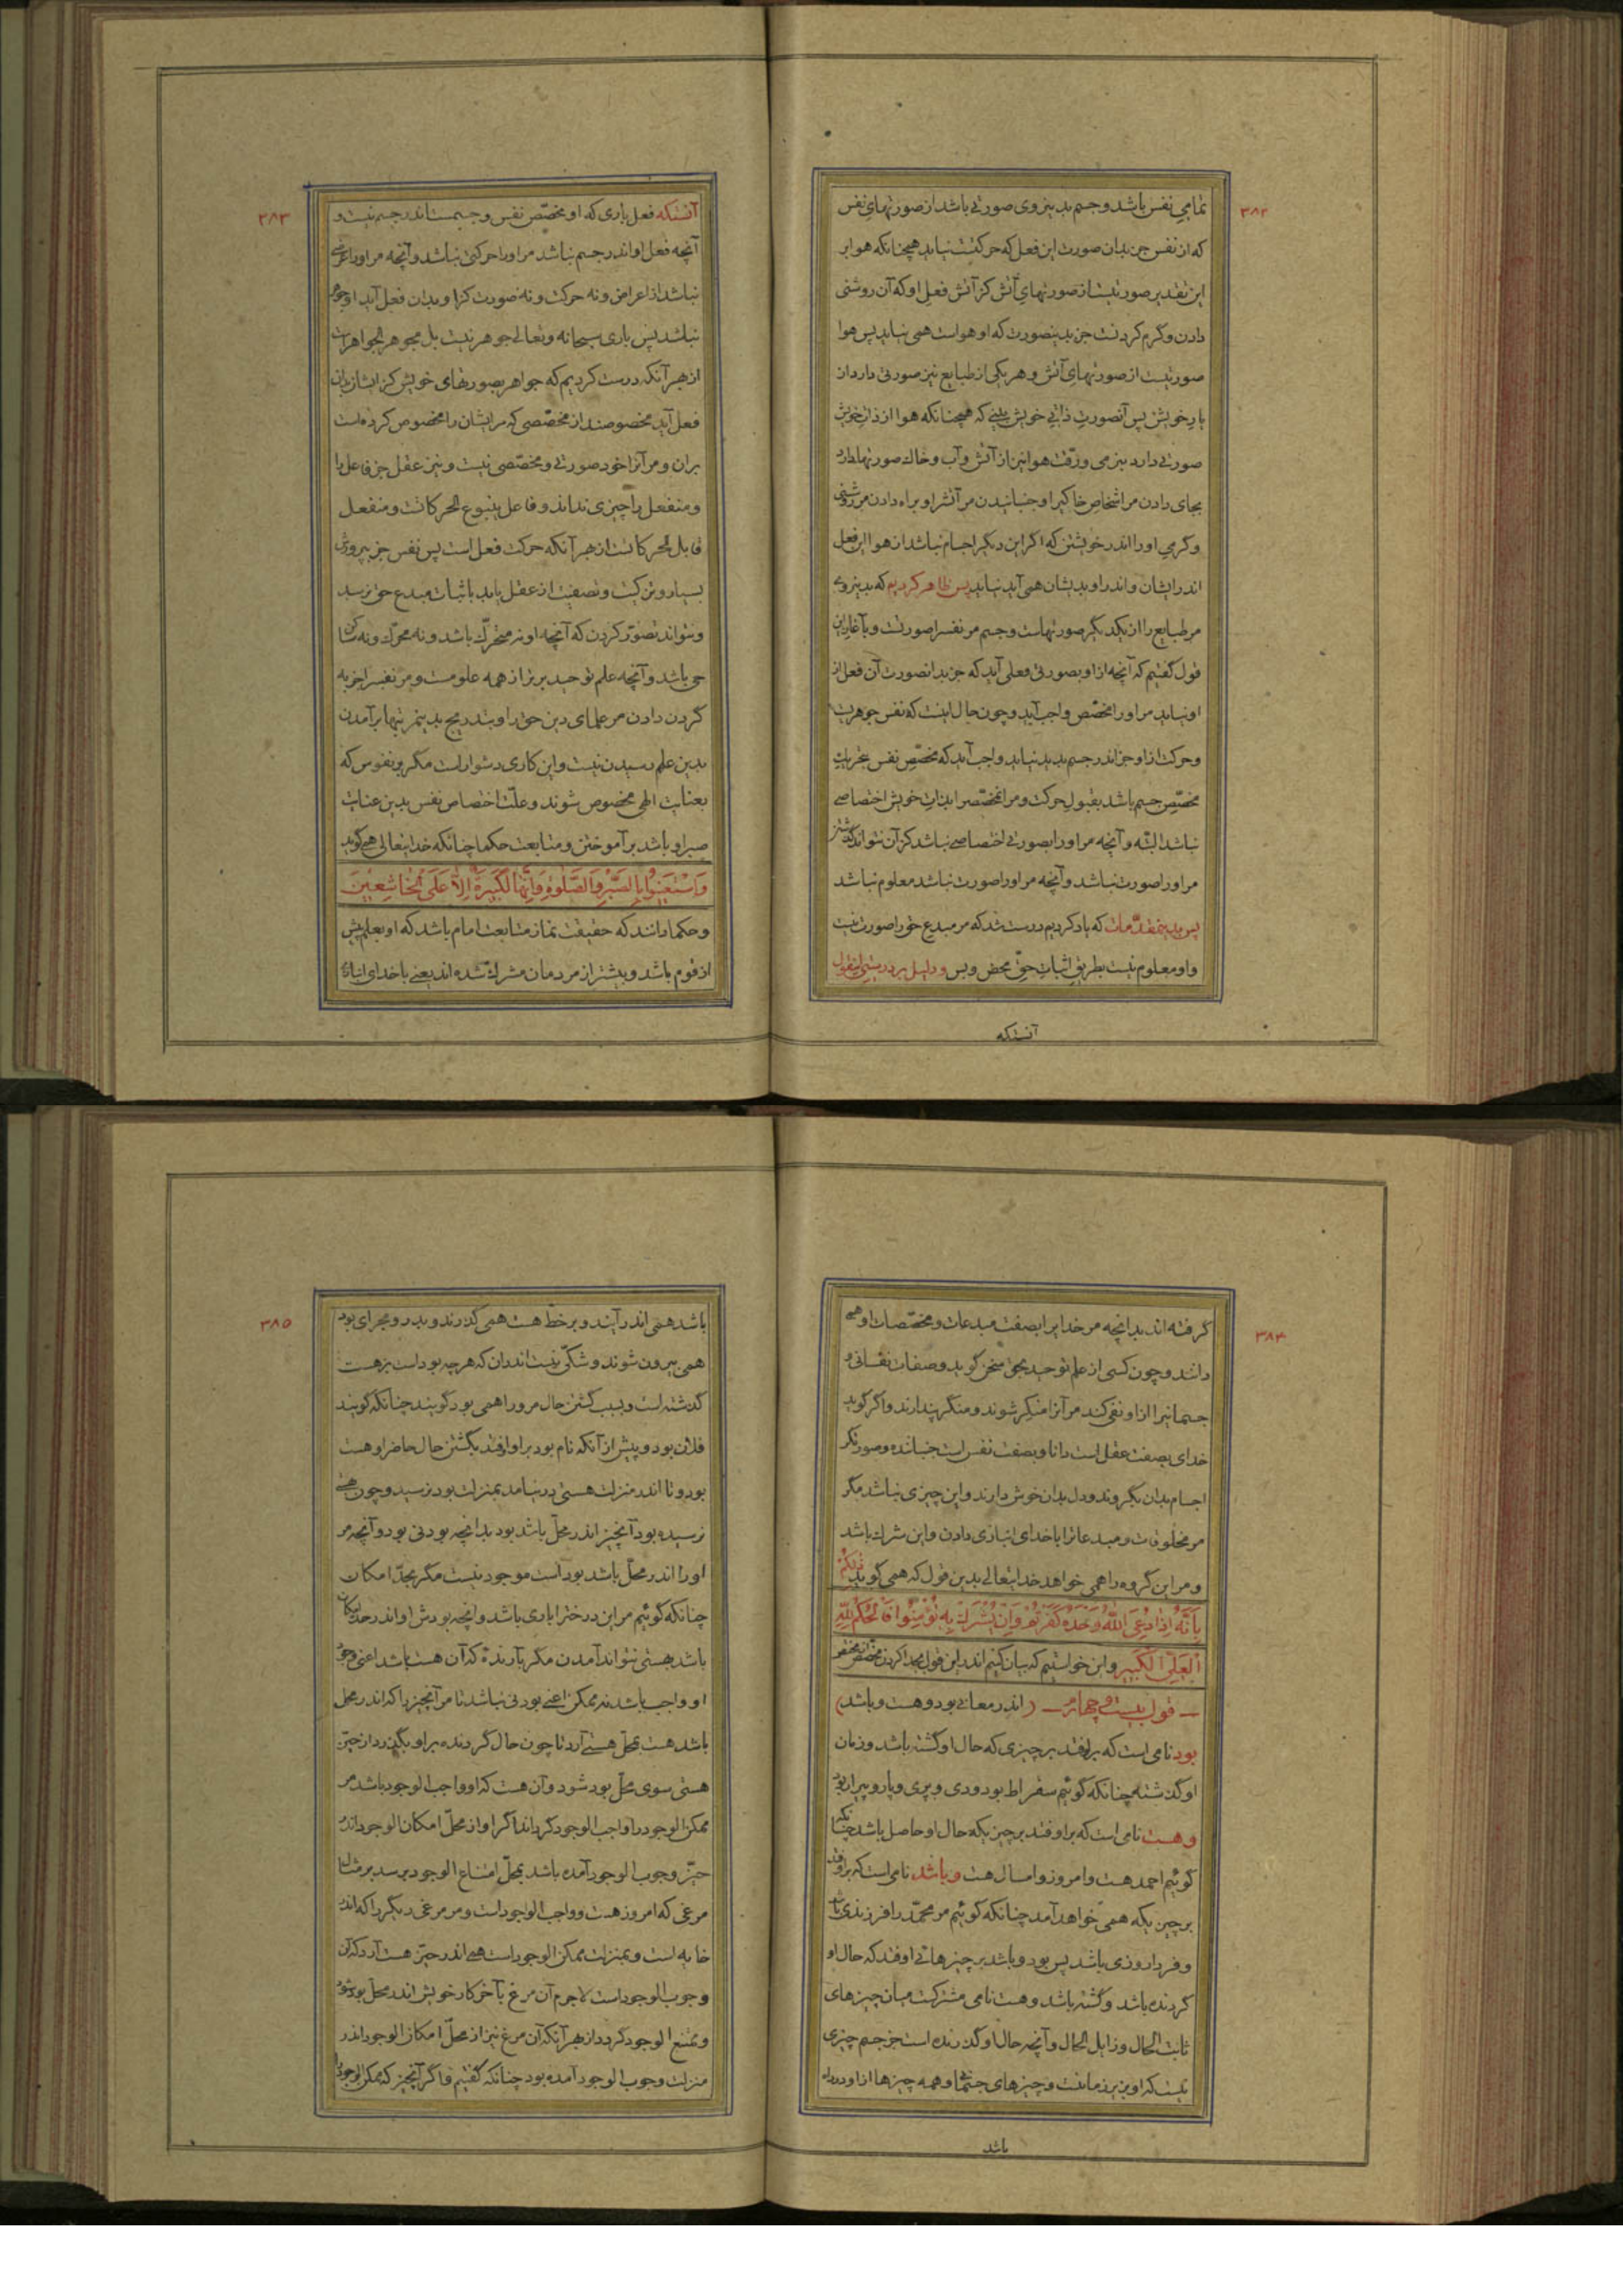 ۳۸۲
تمامی نفس باشد و جسم بدین روی صورتی باشد از صورتهای نفس
که از نفس جز بدان صورت این فعل که حرکتست نیاید همچنانکه هوا بر
این تقدیر صورتیست از صورتهای آتش کز آتش فعل او که آن روشنی
دادن و گرم کردنست جز بدینصورت که او هواست همی نیاید پس هوا
صورتیست از صورتهای آتش و هر یکی از طبایع نیز صورتی دارد از
یار خویش پس آنصورت ذاتی خویش یعنی که همچنانکه هوا از ذات خویش
صورتی دارد بنرمی و رقت هوا نیز از آتش و آب و خاک صورتها دارد
بجای دادن مر اشخاص خاکیرا و جنبانیدن مر آتشرا و براه دادن مر روشنی
و گرمی او را اندر خویشتن که اگر این دیگر اجسام نباشد از هوا این فعل
اندر ایشان و اندر او بدیشان همی آید نیاید پس ظاهر کردیم که بدینروی
مر طبایع را از یکدیگر صورتهاست و جسم مر نفسرا صورتست و بآغاز این
قول گفتیم که آنچه از او بصورتی فعلی آید که جز بدانصورت آن فعل از
او نیاید مر او را مخصّص واجب آید و چون حال اینست که نفس جوهریست
و حرکت از او جز اندر جسم پدید نیاید واجب آید که مخصّص نفس بتحریک
مخصّص جسم باشد بقبول حرکت و مر مخصّصرا بذات خویش اختصاصی
نباشد البتّه و آنچه مر او را بصورتی اختصاصی نباشد کز آن نتواند گذشتن
مر او را صورت نباشد و آنچه مر او را صورت نباشد معلوم نباشد
پس بدین مقدّمات که یاد کردیم درست شد که مر مبدع حق را صورت نیست
و او معلوم نیست بطریق اثبات حقّ محض و بس و دلیل بر درستی اینقول
آنستکه
۳۸۳
آنستکه فعل باری که او مخصّص نفس و جسمست اندر جسم نیست و
آنچه فعل او اندر جسم نباشد مر او را حرکتی نباشد و آنچه مر او را عرضی
نباشد از اعراض و نه حرکت و نه صورت کز او بدان فعل آید او جوهر
نباشد پس باری سبحانه و تعالی جوهر نیست بل مجوهر الجواهر است
از بهر آنکه درست کردیم که جواهر بصورتهای خویش کز ایشان بدان
فعل آید مخصوصند از مخصّصی که مر ایشان را مخصوص کرده است
بران و مر آنرا خود صورتی و مخصّصی نیست و نیز عقل جز فاعل را
و منفعل را چیزی نداند و فاعل ینبوع الحرکاتست و منفعل
قابل الحرکاتست از بهر آنکه حرکت فعل است پس نفس جز بپرورش
بسیار و تزکیت و تصفیت از عقل باید باثبات مبدع حق نرسد
و نتواند تصوّر کردن که آنچه او نه متحرّک باشد و نه محرّک و نه ساکن
حی باشد و آنچه علم توحید برتر از همه علومست و مر نفسرا جز به
گردن دادن مر علمای دین حق را و بتدریج بدین مرتبتها برآمدن
بدین علم رسیدن نیست و این کاری دشوار است مگر بر نفوس که
بعنایت الهی مخصوص شوند و علّت اختصاص نفس بدین عنایت
صبر او باشد بر آموختن و متابعت حکما چنانکه خدایتعالی همی گوید
وَاسْتَعِینُوا بِالصَّبْرِ وَالصَّلٰوةِ وَاِنَّهَا لَکَبِیرَةٌ اِلَّا عَلَی الْخَاشِعِینَ
و حکما دانند که حقیقت نماز متابعت امام باشد که او بعلم پیش
از قوم باشد و بیشتر از مردمان مشرک شده اند یعنی با خدای انبازی
۳۸۴
گرفته اند بدانچه مر خدایرا بصفت مبدعات و مخصّصات او همی
دانند و چون کسی از علم توحید بحق سخن گوید و صفات نفسانی و
جسمانیرا از او نفی کند مر آنرا منکر شوند و منکر پندارند و اگر گوید
خدای بصفت عقل است دانا و بصفت نفس است جنباننده و صورتگر
اجسام بدان بگروند و دل بدان خوش دارند و این چیزی نباشد مگر
مر مخلوقات و مبدعاترا با خدای انبازی دادن و این شرک باشد
و مر این گروه را همی خواهد خدایتعالی بدین قول که همی گوید ذٰلِکُمْ
بِاَنَّهُ اِذَا دُعِیَ اللّٰهُ وَحْدَهُ کَفَرْتُمْ وَاِنْ یُشْرَکْ بِهِ تُؤْمِنُوا فَالْحُکْمُ لِلّٰهِ
الْعَلِیِّ الْکَبِیرِ و این خواستیم که بیان کنیم اندر این قول بجدا کردن مخصّص از مختص
قول بیست و چهارم (اندر معانی بود و هست و باشد)
بود نامی است که بر اوفتد بر چیزی که حال او گشته باشد و زمان
او گذشته چنانکه گوئیم سقراط بود و دی و پری و پار و پیرار بود
و هست نامی است که بر اوفتد بر چیزیکه حال او حاصل باشد چنانکه
گوئیم احمد هست و امروز و امسال هست و باشد نامی است که بر اوفتد
بر چیزیکه همی خواهد آمد چنانکه گوئیم مر محمّد را فرزندی باشد
و فردا روزی باشد پس بود و باشد بر چیزهائی اوفتد که حال او
گردنده باشد و گشته باشد و هست نامی مشترکست میان چیزهای
ثابت الحال و زایل الحال و آنچه حال او گذرنده است جز جسم چیزی
نیست که او بزیر زمانست و چیزهای جسمانی و همه چیزها از او در راه
باشد
۳۸۵
باشد همی اندر آیند و بر خطّ هست همی گذرند و بدر و مجرای بود
همی بیرون شوند و شکّی نیست اندران که هر چه بود است بر هست
گذشته است و بسبب گشتن حال مر ورا همی بود گویند چنانکه گویند
فلان بود و پیش از آنکه نام بود بر او اوفتد بگشتن حال حاضر او هست
بود و تا اندر منزلت هستی در نیامد بمنزلت بود نرسید و چون هستی
نرسیده بود آنچیز اندر محلّ باشد بود بدانچه بودنی بود و آنچه مر
او را اندر محلّ باشد بود است موجود نیست مگر بحدّ امکان
چنانکه گوئیم مر این درخترا باری باشد و آنچه بودش او اندر حد امکان
باشد بهستی نتواند آمدن مگر بآرنده که آن هست باشد اعنی وجود
او واجب باشد نه ممکن اعنی بودنی نباشد تا مر آنچیز را که اندر محل
باشد هست بمحلّ هستی آرد تا چون حال گردنده بر او بگذرد از حیّز
هستی سوی محلّ بود شود و آن هست که او واجب الوجود باشد مر
ممکن الوجود را واجب الوجود گرداند اگر او از محلّ امکان الوجود اندر
حیّز وجوب الوجود آمده باشد بمحلّ امتناع الوجود برسد بر مثال
مرغی که امروز هست و واجب الوجود است و مر مرغی دیگر را که اندر
خایه است و بمنزلت ممکن الوجود است همی اندر حیّز هست آرد که آن
وجوب الوجود است لاجرم آن مرغ بآخر کار خویش اندر محلّ بود شود
و ممتنع الوجود گردد از بهر آنکه آن مرغ نیز از محلّ امکان الوجود اندر
منزلت وجوب الوجود آمده بود چنانکه گفتیم و اگر آنچیز که ممکن الوجود را